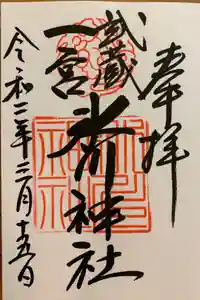 奉拝
武蔵
一宮
氷川神社
令和二年三月十五日